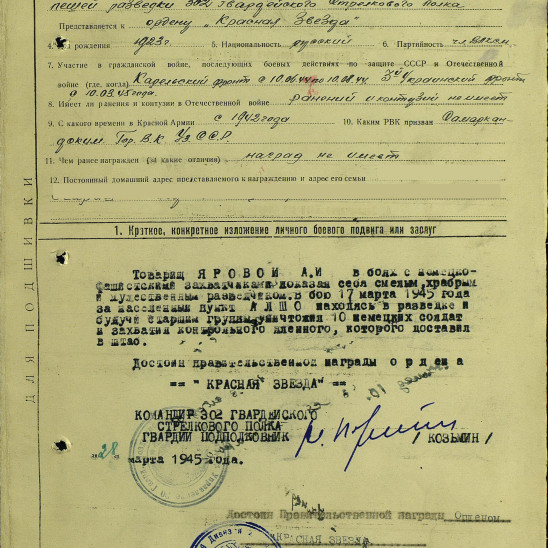 пешей разведки 302 гвардейского стрелкового полка
Представляется к ордену "Красная Звезда"
рождения 1923г. 5. Национальность русский 6. Партийность чл. ВЛКСМ
7. Участие в гражданской войне, последующих боевых действиях по защите СССР и Отечественной
войне (где, когда) Карельский фронт с 10.06.44 по 10.08.44. 3й Украинский фронт
с 10.03.45 года.
8. Имеет ли ранения и контузии в Отечественной войне ранений и контузий не имеет
9. С какого времени в Красной Армии с 1942 года 10. Каким РВК призван Самаркан-
дским Гор. В.К Уз. ССР.
11. Чем ранее награжден (за какие отличия) наград не имеет
12. Постоянный домашний адрес представляемого к награждению и адрес его семьи
1. Краткое, конкретное изложение личного боевого подвига или заслуг
Товарищ ЯРОВОЙ А.И в боях с немецко-
фашистскими захватчиками показал себя смелым, храбрым
и мужественным разведчиком. В бою 17 марта 1945 года
за населенный пункт АЛШО находясь в разведке и
будучи старшим группы уничтожил 10 немецких солдат
и захватил контрольного пленного, которого доставил
в штаб.
Достоин правительственной награды ордена
== "КРАСНАЯ ЗВЕЗДА" ==
КОМАНДИР 302 ГВАРДЕЙСКОГО
СТРЕЛКОВОГО ПОЛКА
ГВАРДИИ ПОДПОЛКОВНИК /КОЗЬМИН/
"28" марта 1945 года.
Достоин Правительственной награды Орденом
КРАСНАЯ ЗВЕЗДА
ДЛЯ ПОДШИВКИ